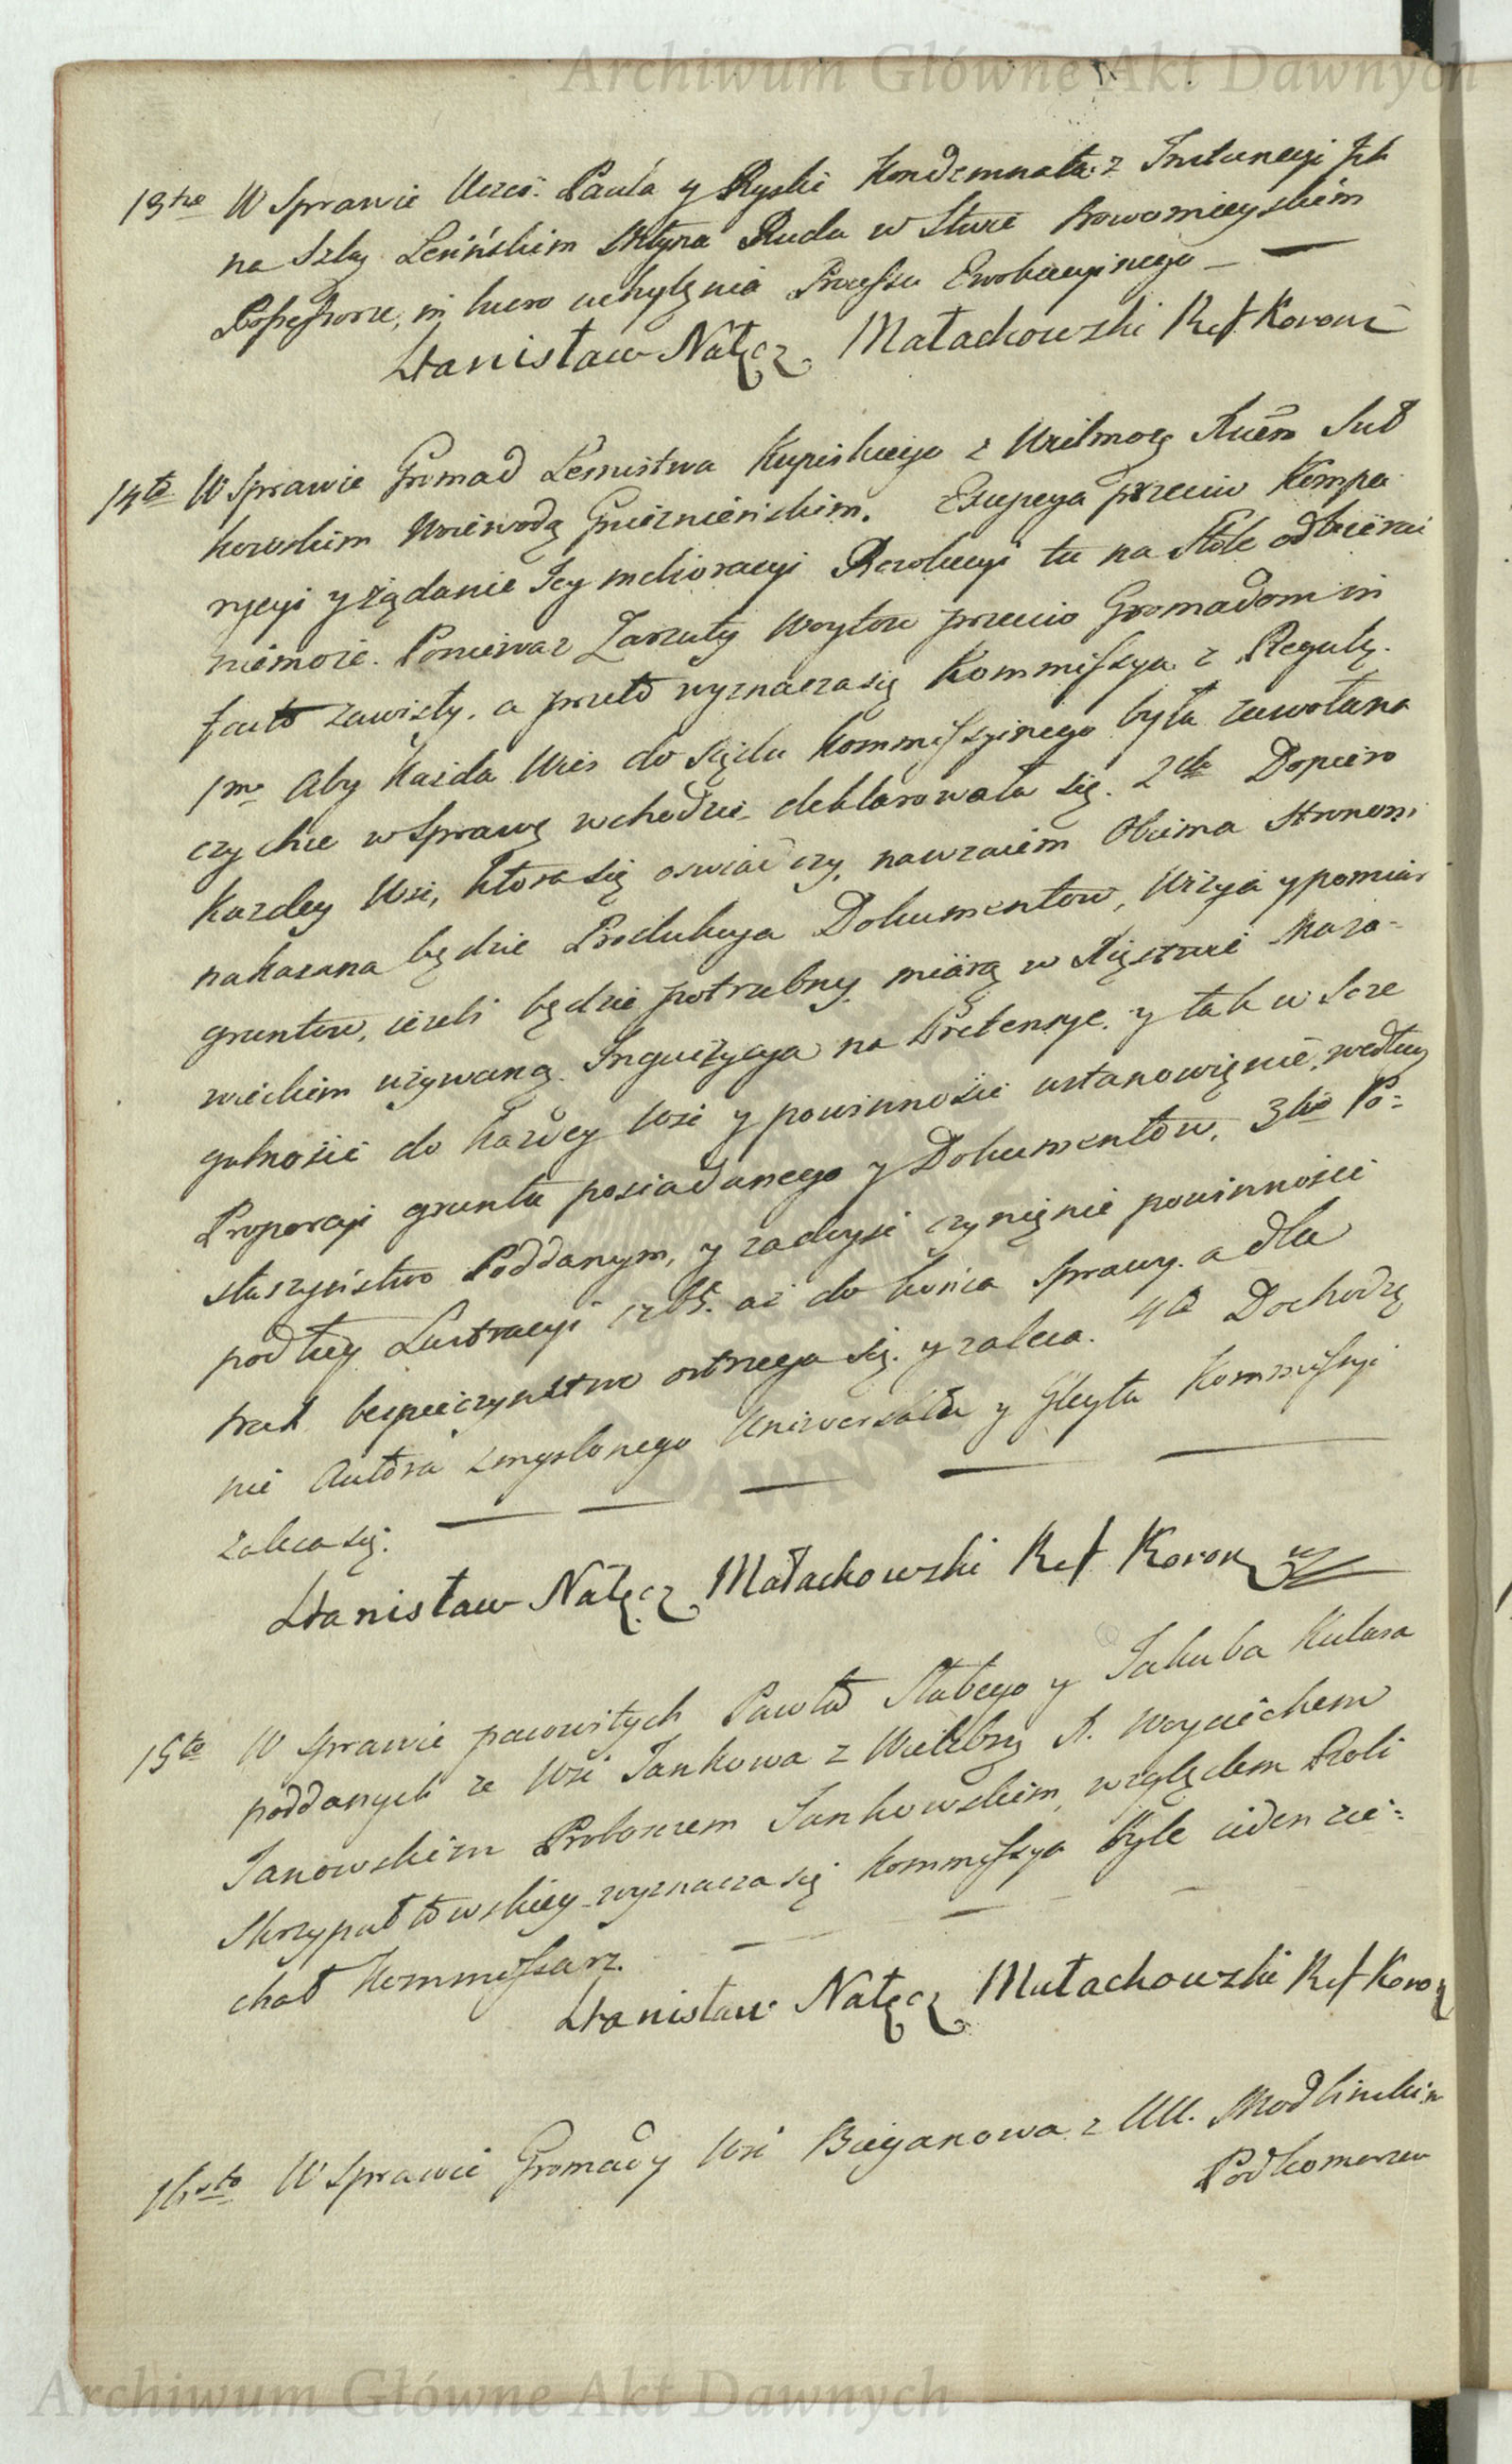 Archiwum Główne Akt Dawnych
13tio W Sprawie Uczci. Pawła y Ryski Kondemnata z Instancyi Ich
na Szla. Lesińskim Ruda w Starie Nowomieyskim
Possessorze, in luero uchylęnia Processu Ewokacyinego
Stanisław Nałęcz Małachowski Ref Koronē
14to W Sprawie Gromad Lesnistwa Kupiskiego z Wielmoz Xuēm Suł
kowskim Woiewodą Gnieznieńskim. Excepcya przeciw Kompa
rycyi y żądanie Jey melioracyi Rezolucyi tu na Stole odbierać
niemoże. Poniewaz Zarzuty Woytow przeciw Gromadom in
facto zawisły, a przeto wyznacza się Kommissya z Regułą.
1mo Aby Kazda Wies do Sądu Kommissyinego była zawołana
czy chce w Sprawę wchodzić deklarowała się. 2do Dopiero
Kazdey Wsi, ktora się oswiadczy, nawzaiem Obiema Stronom
nakazana będzie Produkcya Dokumentow, Wizya y pomiar
gruntow, iezeli będzie potrzebny, miarą w Xięstwie Mazo-
wieckim używaną. Inquizycya na Pretensye, y tak w Szcze
gulności do kazdey Wsi y powinności ustanowięnie, według
Proporcyi gruntu posiadanego y Dokumentow. 3tio Po=
słuszeństwo Poddanym, y zaciągi czynięnie powinności
podług Lustracyi aż do końca Sprawy, a dla
bespieczynstwo ostrzega się y zaleca. 4to Dochodzę
nie Autora zmyslonego Uniwersału y Gleytu Kommissyi
zaleca się.
Stanisław Nałęcz Małachowski Ref Koron
15to W Sprawie pracowitych Pawła Słabego y Jakuba Kulasa
poddanych ze Wsi Jankowa z Wielebny X. Woyciechem
Janowskim Proboszczem Jankowskim, względem Roli
Skrzypałtowskiey wyznacza się Kommissya byle ieden zie=
chał Kommissarz.
Stanisław Nałęcz Małachowski Ref Koron
16sto W Sprawie Gromady Wsi Bieganowa z UU. Modlinskim
Podkomorzem
Archiwum Główne Akt Dawnych